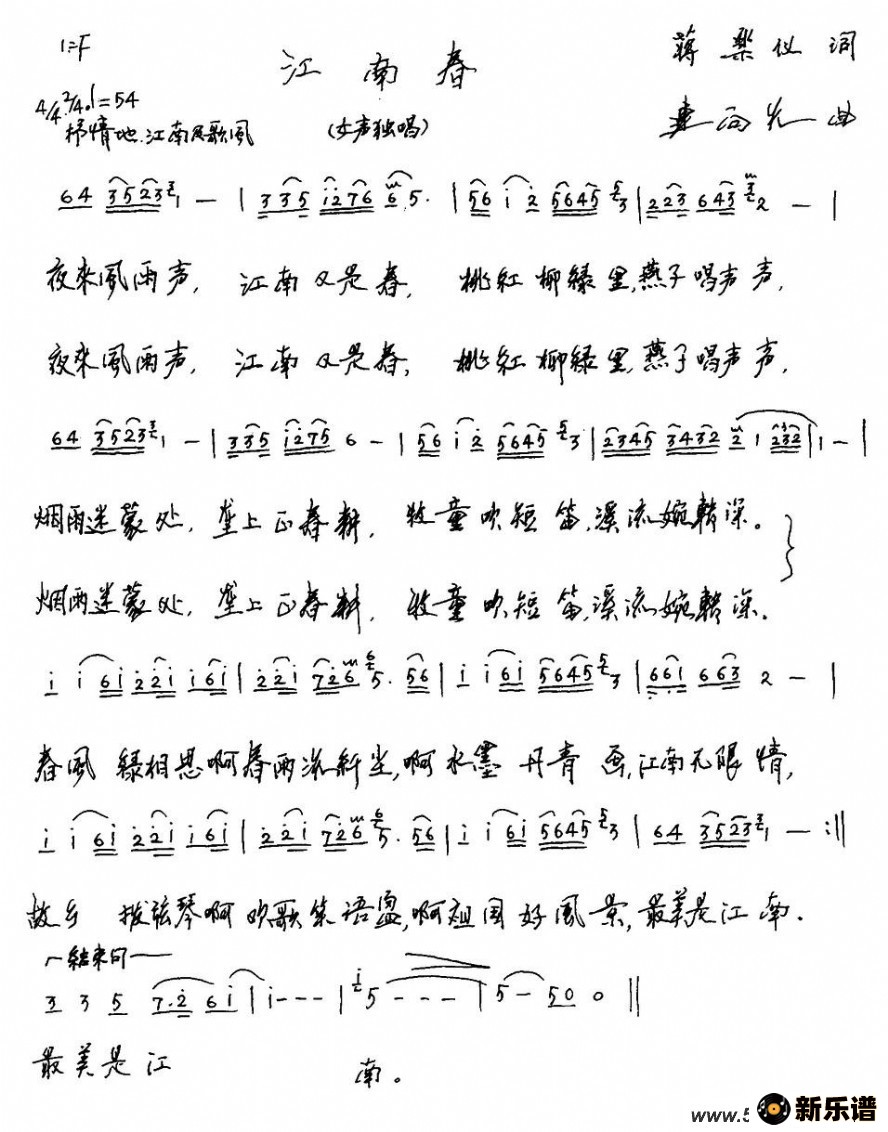 1=F
江南春
蒋乐仪 词
4/4 2/4 ♩=54
抒情地.江南民歌風
(女声独唱)
曲
64 35231 — | 335 1276 65. | 56 1 2 56453 | 223 643 2 — |
夜来風雨声, 江南又是春, 桃红柳绿里,燕子唱声声,
夜来風雨声, 江南又是春, 桃红柳绿里,燕子唱声声,
64 35231 — | 335 1275 6 — | 56 1 2 56453 | 2345 3432 2 1 232 | 1 — |
烟雨迷蒙处, 垄上正春耕, 牧童吹短笛,溪流婉转深。
烟雨迷蒙处, 垄上正春耕, 牧童吹短笛,溪流婉转深。
1 1 61 221 161 | 221 726 5. 56 | 1 161 56453 | 661 663 2 — |
春風 绿相思啊春雨洗纤尘,啊水墨丹青画,江南无限情,
1 1 61 221 161 | 221 726 5. 56 | 1 161 56453 | 64 35231 — :||
故乡 拨弦琴啊欢歌笑语盈,啊祖国好風景,最美是江南.
结束句
3 3 5 7.2 61 | 1 - - - | 5 - - - | 5 — 50 0 ||
最美是江 南。
www.5
新乐谱